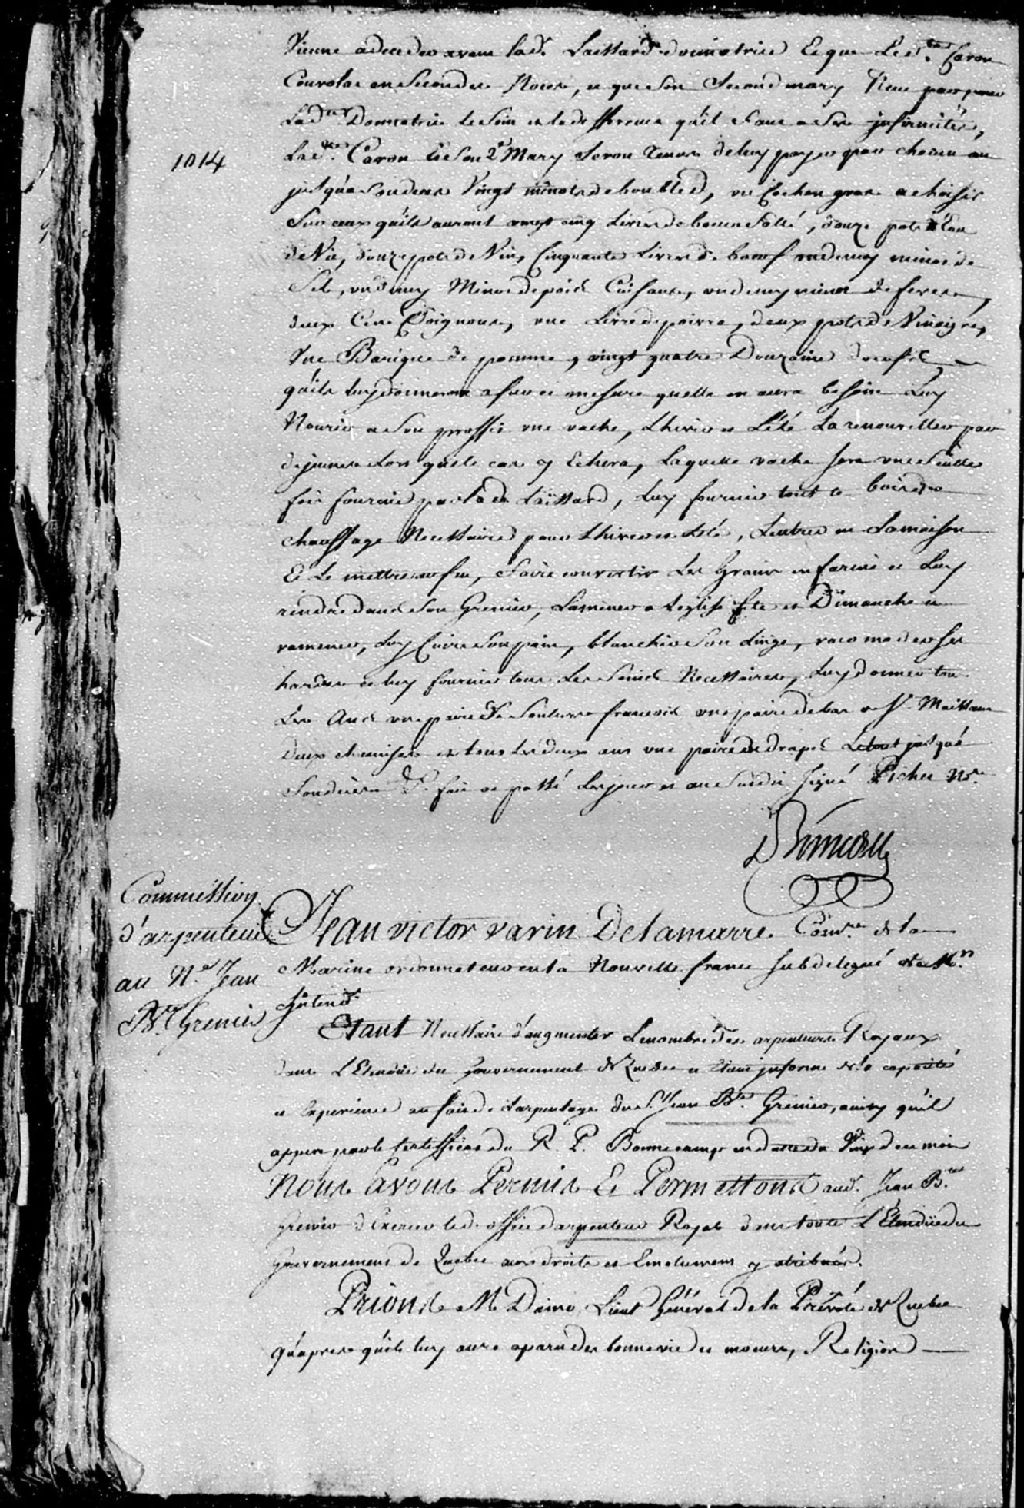 Vienne a deceder avant lad.e Laittard donnatrice Et que Led.te Caron
Convolat en Secondes Noces, et que Son Second mary Neut pas pour
Lad.te Donnatrice Le Soin et la defference qu'il Faut a Ses infirmités,
1014
Lad.te Caron Et Son 2.d Mary Seront tenus de luy payer par chacun an
jusqu'a Son deces Vingt minots de bon bled, un Cochon gras a choisir
Sur ceux qu'ils auront vingt cinq Livres de beurre Sallé, douze pots d'Eau
de Vie, douze pots de Vin, Cinquante Livres de boeuf un demy minot de
Sel, un demy Minot de pois Cuisants, un demy minot de feves,
deux Cent d'oignons, une Livre de poivre, deux pots de Vinaigre,
Une Barique de pomme, vingt quatre Douzaine d'oeufs
qu'ils luy donneront a fur et mesure quelle en aura besoin Luy
Nourir a Son proffit une vache, L'hiver et L'été La renouveller par
de jeunes Lors que le cas y Echera, Laquelle vache Sera une Seulle
fois fournie par Lad.e Laittard, Luy fournir tout le bois de
chauffage Necessaire pour L'hiver et L'été, L'entrer en La maison
Et Le mettre au feu, faire convertir Les Grains en farine et Les
rendre dans Son Grenier, La mener a L'eglise fete et Dimanche et
ramener, Luy Cuire Son pain, blanchir Son Linge, racomoder Ses
hardes et luy fournir tous Les Soins Necessaires, Luy donner tous
Les Ans une paire de Souliers francois une paire de bas de S.t Maixant
deux chemises et tous Les deux ans une paire de draps Le tout jusqu'a
Son deces d.e fait et passé Les jour et an Susdit Signé Pichet N.re
Commission
d'arpenteur
au N.é Jean
B.te Grenier
Jean victor varin De Lamarre Com.re de la
Marine ordonnateur en La Nouvelle france Subdelegué de M.r
L'Intend.t
Etant Necessaire d'augmenter Le nombre des arpenteurs Royaux
dans L'Etendüe du Gouvernement de Quebec et Etant informé de la capacité
et Experience au fait de L'arpentage du S.r Jean B.te Grenier, ainsy qu'il
appert par le Certifficat du R. P. Bonnecamp en datte du Vingt deux mai
Nous avons Permis Et Permettons aud. Jean B.te
Grenier d'Exercer led. office d'arpenteur Royal dans toute L'Etendüe du
Gouvernement de Quebec aux droits et Emolumens y attribués.
Prions M.e Daine Lieut Général de la Prévoté de Quebec
qu'apres qu'il luy aura aparu des bonne vie et moeurs, Religion